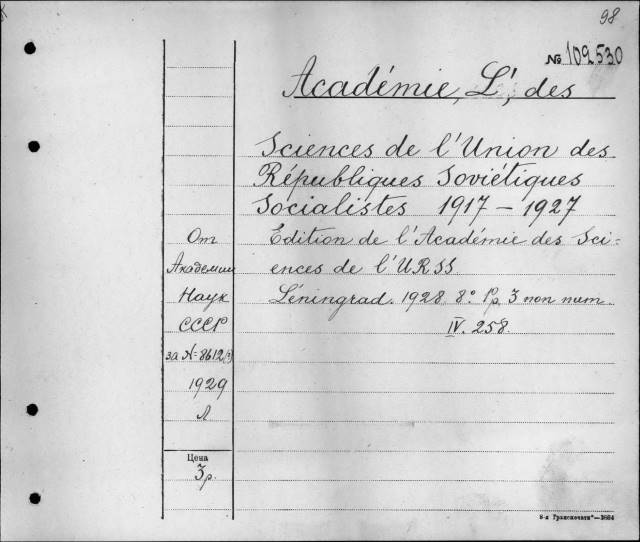 98
№ 109530
Académie, L', des
Sciences de l'Union des
Républiques Soviétiques
Socialistes 1917 – 1927
Edition de l'Académie des Sci=
ences de l'URSS
Léningrad. 1928 8° Pp. 3 non num.
IV. 258.
От
Академии
Наук
СССР
за №
1929
Л
Цена
3 р.
8-я Транспечати"—3884